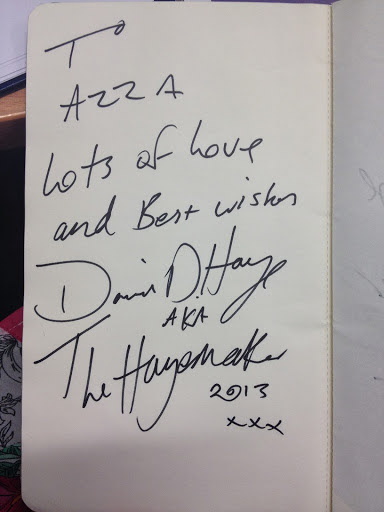 To
AZZA
Lots of Love
and Best wishes
David D. Haye
AKA
The Hayemaker
2013
xxx